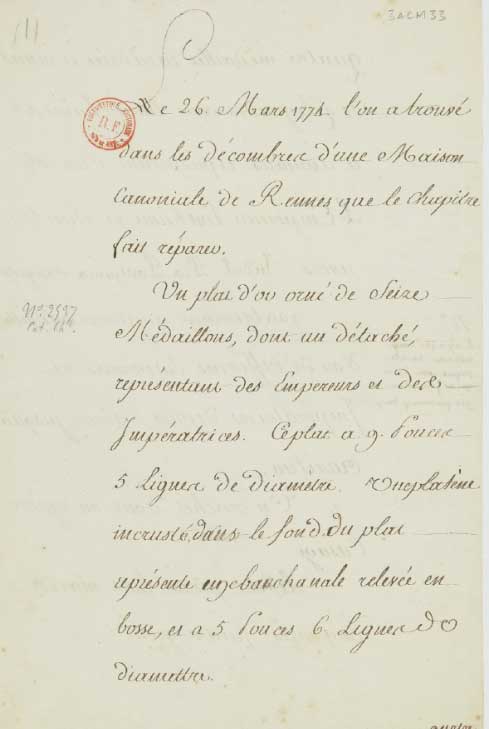 (1)
3ACM33
Le 26. Mars 1774 l'on a trouvé
dans les décombres d'une Maison
Canoniale de Rennes que le Chapitre
fait réparer.
Un plat d'or orné de Seize
Nº. 2537
Médaillons, dont un détaché,
représentant des Empereurs et des
Impératrices. Ce plat a 9. Pouces
5 Lignes de diametre. Une platène
incrusté dans le fond du plat
représente une bachanale relevée en
bosse, et a 5 Pouces 6 Lignes de
diamettre.
R.F.